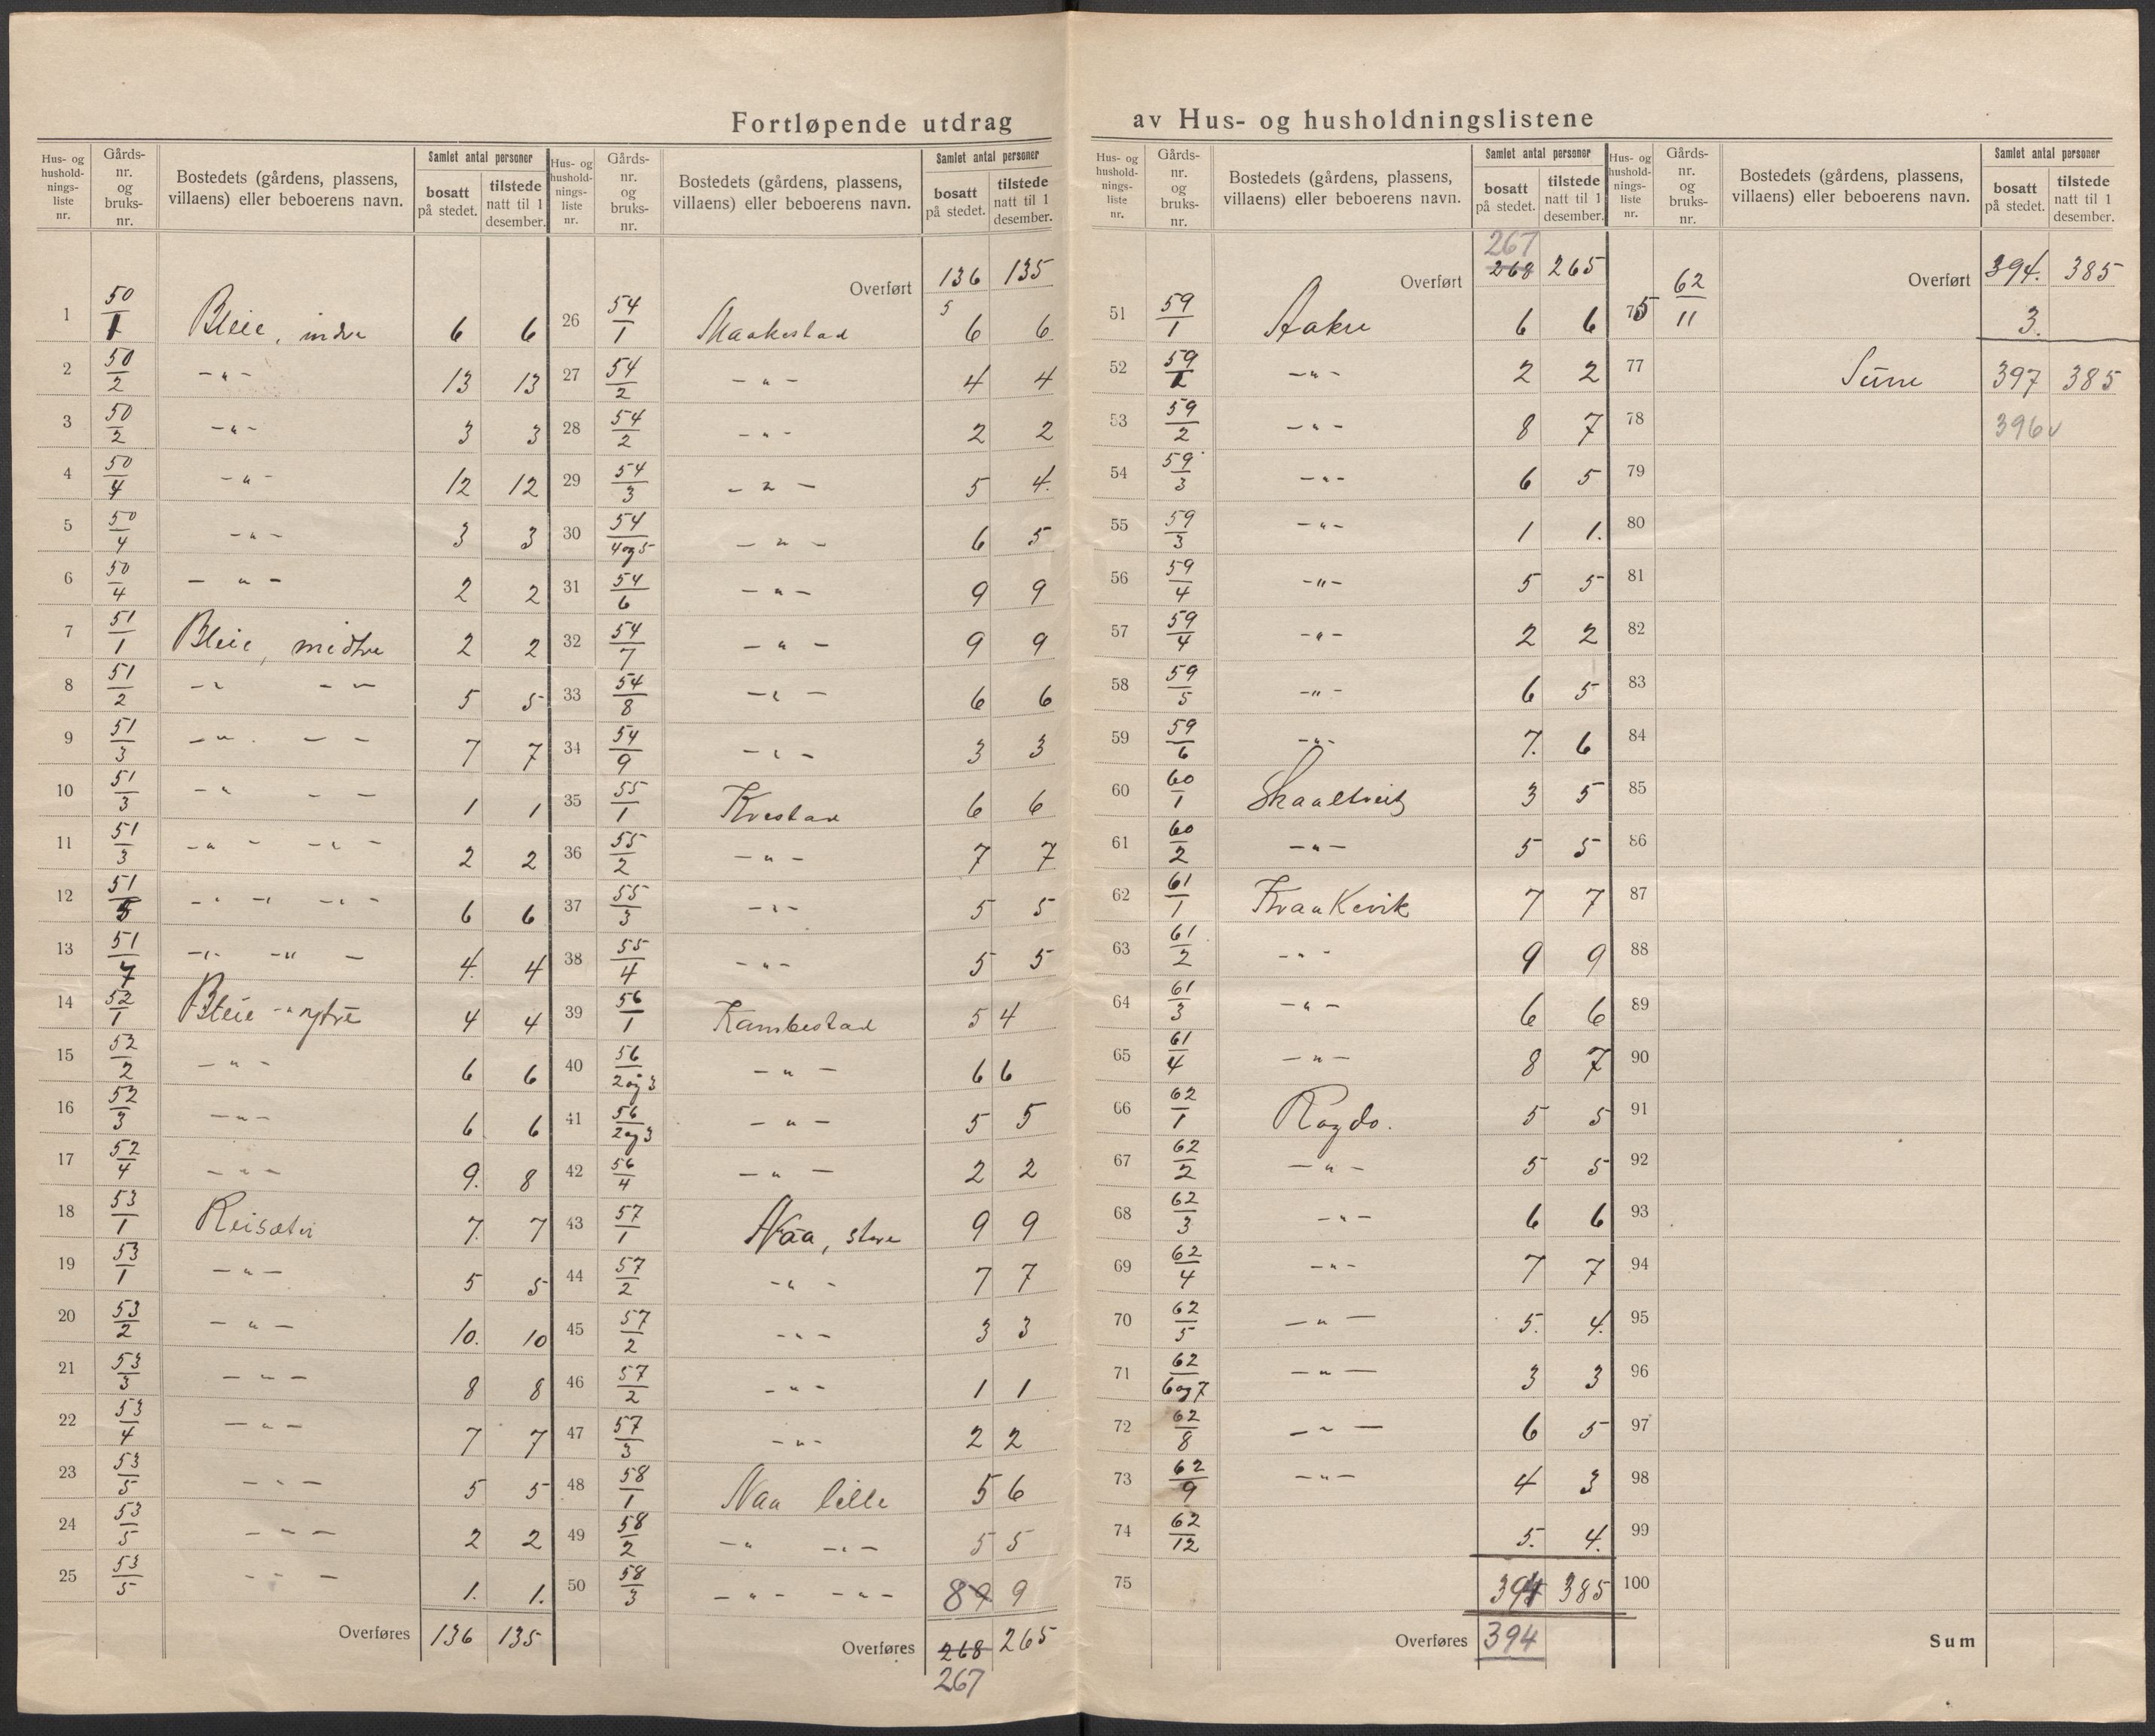 Fortløpende utdrag av Hus- og husholdningslistene
Hus- og husholdnings-liste nr. | Gårds-nr. og bruks-nr. | Bostedets (gårdens, plassens, villaens) eller beboerens navn. | Samlet antal personer | bosatt på stedet. | tilstede natt til 1 desember.
1 50/1 Bleie, indre 6 6
2 50/2 -„- 13 13
3 50/2 -„- 3 3
4 50/4 -„- 12 12
5 50/4 -„- 3 3
6 50/4 -„- 2 2
7 51/1 Bleie, midtre 2 2
8 51/2 -„- -- 5 5
9 51/3 -„- -- 7 7
10 51/3 -„- -- 1 1
11 51/3 -„- -„- 2 2
12 51/5 -„- -„- 6 6
13 51/7 -„- -„- 4. 4
14 52/1 Bleie -„- ytre 4 4
15 52/2 -„- 6 6
16 52/3 -„- 6 6
17 52/4 -„- 9. 8
18 53/1 Reisæter 7. 7
19 53/1 -„- 5 5
20 53/2 -„- 10. 10
21 53/3 -„- 8 8
22 53/4 -„- 7 7
23 53/5 -„- 5 5
24 53/5 -„- 2 2
25 53/5 -„- 1. 1.
Overføres 136 135
Hus- og husholdnings-liste nr. | Gårds-nr. og bruks-nr. | Bostedets (gårdens, plassens, villaens) eller beboerens navn. | Samlet antal personer | bosatt på stedet. | tilstede natt til 1 desember.
Overført 136 135
5
26 54/1 Maakestad 6 6
27 54/2 -„- 4 4
28 54/2 -„- 2 2
29 54/3 -„- 5 4.
30 54/4 og 5 -„- 6 5
31 54/6 -„- 9 9
32 54/7 -„- 9 9
33 54/8 -„- 6 6
34 54/9 -„- 3 3
35 55/1 Kvestad 6 6
36 55/2 -„- 7 7
37 55/3 -„- 5 5
38 55/4 -„- 5 5
39 56/1 Kambestad 5 4
40 56/2 og 3 -„- 6 6
41 56/2 og 3 -„- 5 5
42 56/4 -„- 2 2
43 57/1 Naa, store 9 9
44 57/2 -„- 7 7
45 57/2 -„- 3 3
46 57/2 -„- 1 1
47 57/3 -„- 2 2
48 58/1 Naa lille 5 6
49 58/2 -„- -„- 5 5
50 58/3 -„- -„- 8 9 9
Overføres 268 265
267
Hus- og husholdnings-liste nr. | Gårds-nr. og bruks-nr. | Bostedets (gårdens, plassens, villaens) eller beboerens navn. | Samlet antal personer | bosatt på stedet. | tilstede natt til 1 desember.
267
Overført 268 265
51 59/1 Aakre 6 6
52 59/1 -„- 2 2
53 59/2 -„- 8 7
54 59/3 -„- 6 5
55 59/3 -„- 1 1.
56 59/4 -„- 5 5
57 59/4 -„- 2 2
58 59/5 -„- 6 5
59 59/6 -„- 7. 6
60 60/1 Skaaltveit 3 5
61 60/2 -„- 5 5
62 61/1 Kraakevik 7 7
63 61/2 -„- 9 9
64 61/3 -„- 6 6
65 61/4 -„- 8 7
66 62/1 Rogdo. 5 5
67 62/2 -„- 5 5
68 62/3 -„- 6 6
69 62/4 -„- 7 7
70 62/5 -„- 5. 4.
71 62/6 og 7 -„- 3 3
72 62/8 -„- 6 5
73 62/9 -„- 4 3
74 62/12 5. 4.
75 394 385
Overføres 394
Hus- og husholdnings-liste nr. | Gårds-nr. og bruks-nr. | Bostedets (gårdens, plassens, villaens) eller beboerens navn. | Samlet antal personer | bosatt på stedet. | tilstede natt til 1 desember.
Overført 394. 385
75 62/11 3.
77 Sum 397 385
78 396 v
79
80
81
82
83
84
85
86
87
88
89
90
91
92
93
94
95
96
97
98
99
100
Sum